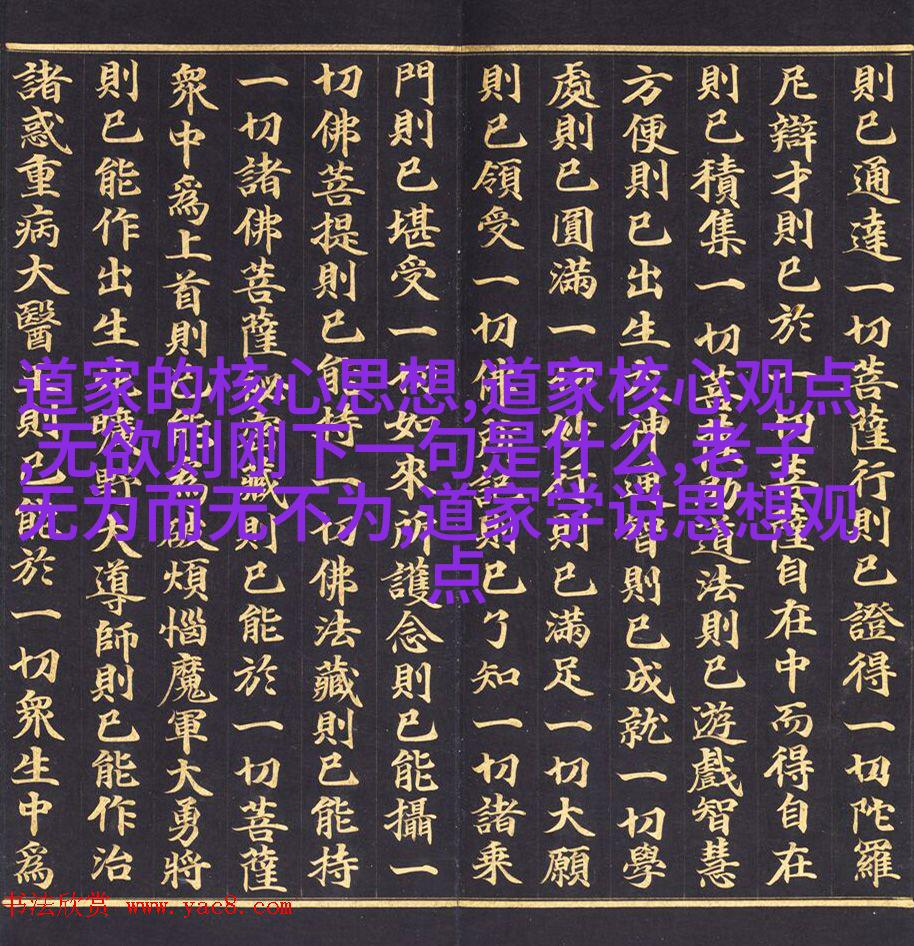 則已通達一切菩薩行則已證得一切陀羅
尼辯才則已於一切菩薩自在中而得自在
則已積集一切菩薩助道法則已遊戲智慧
方便則已出生神通智則已成就一切學
處則已圓滿一切妙行則已滿足一切大願
則已領受一切佛所記則已了知一切諸乘
門則已堪受一切如來所護念則已能攝一
切佛菩提則已能持一切佛法藏則已能持
一切諸佛菩薩祕密藏則已能於一切菩薩
衆中爲上首則已能爲破煩惱魔軍大勇將
則已能作出生死曠野大導師則已能作治
諸惑重病大醫王則已能於一切衆生中爲
道家的核心思想,道家核心观点
,无欲则刚下一句是什么,老子
无为而无不为,道家学说思想观
点
书法欣赏 www.yac8.com